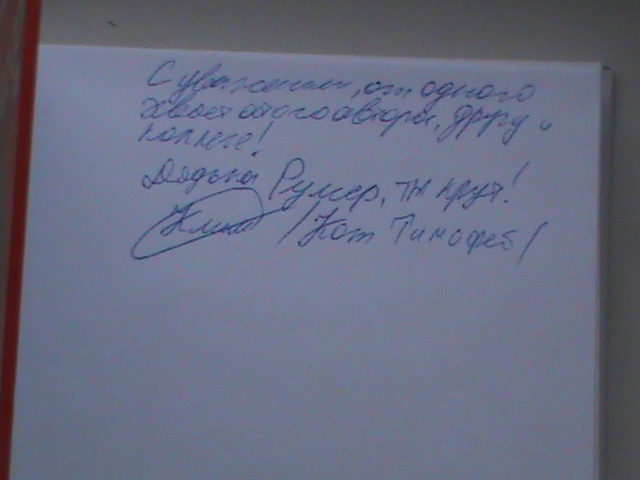 С уважением, от одного
хвостатого автора, другу и
коллеге!
Дядька Румер, ты крут!
/Кот Тимофей/